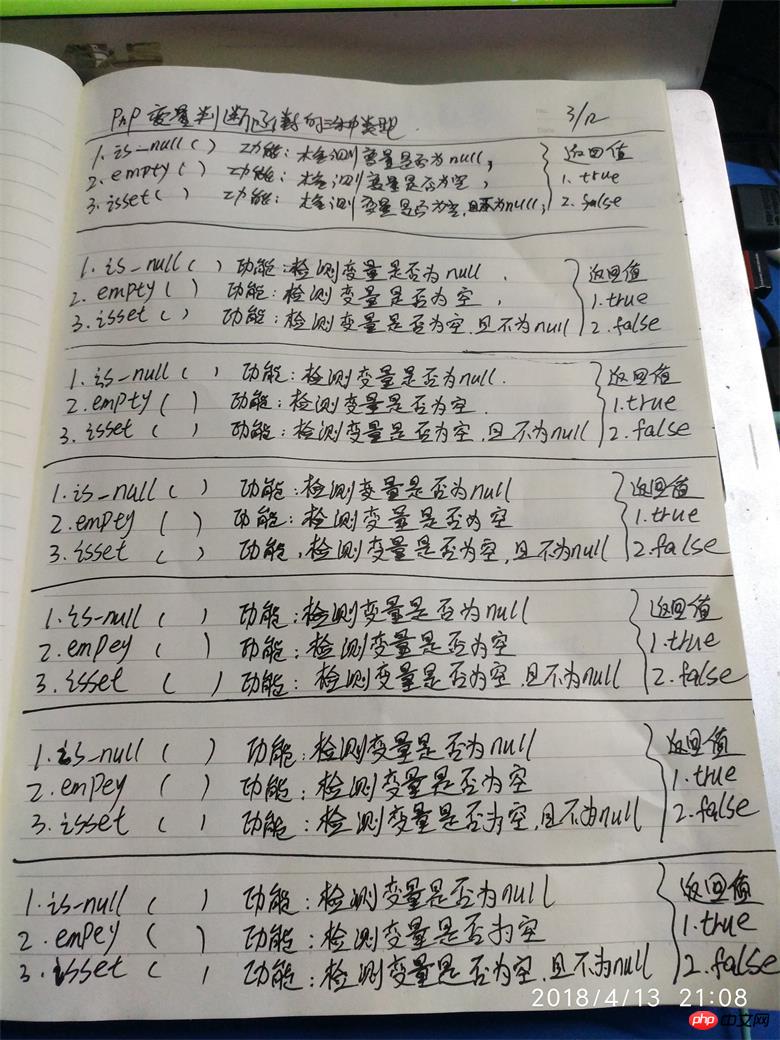 PHP 变量判断函数的三种类型 3/12
1. is_null ( ) 功能: 检测变量是否为null, 返回值
2. empty ( ) 功能: 检测变量是否为空, 1. true
3. isset ( ) 功能: 检测变量是否为空,且不为null, 2. false
1. is_null ( ) 功能:检测变量是否为null. 返回值
2. empty ( ) 功能:检测变量是否为空, 1.true
3. isset ( ) 功能:检测变量是否为空,且不为null 2.false
1. is_null ( ) 功能:检测变量是否为null. 返回值
2. empty ( ) 功能:检测变量是否为空. 1.true
3. isset ( ) 功能:检测变量是否为空,且不为null 2.false
1. is_null ( ) 功能:检测变量是否为null 返回值
2. empty ( ) 功能:检测变量是否为空 1.true
3. isset ( ) 功能,检测变量是否为空,且不为null 2.false
1. is-null ( ) 功能:检测变量是否为null 返回值
2. empey ( ) 功能:检测变量是否为空 1.true
3. isset ( ) 功能:检测变量是否为空,且不为null 2.false
1. is-null ( ) 功能:检测变量是否为null 返回值
2. empey ( ) 功能:检测变量是否为空 1.true
3. isset ( ) 功能:检测变量是否为空,且不为null 2.false
1. is-null ( ) 功能:检测变量是否为null 返回值
2. empey ( ) 功能:检测变量是否为空 1.true
3. isset ( ) 功能:检测变量是否为空,且不为null 2.false
2018/4/13 21:08
php 中文网